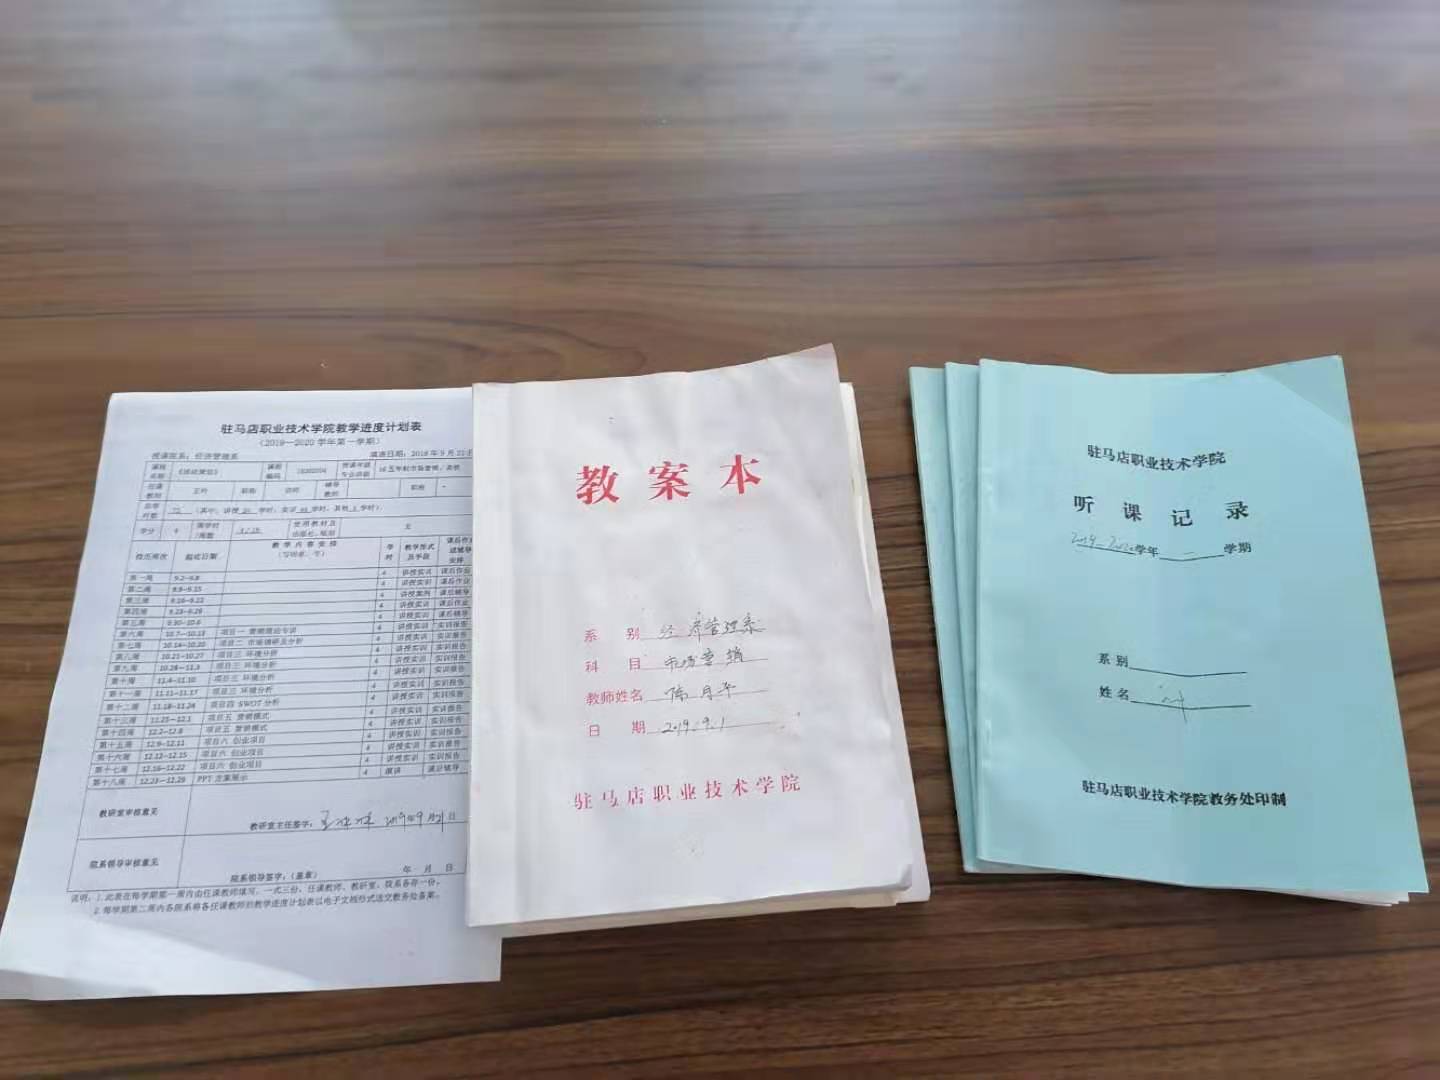 驻马店职业技术学院教学进度计划表
(2019—2020 学年第一学期)
授课院系：经济管理系
课程名称 课程编码 授课年级专业讲班
任课教师 职称 讲师 辅导教师 职称 -
总学时数 72 (其中，讲授 学时，实训 学时，其他 学时)
学分 4 周学时/周数 使用教材及出版社、规划 无
校历周次 起讫日期 教学内容安排 学时 教学形式及手段
第一周 9.2-9.8 4 讲授实训 课后作业
第二周 9.9-9.15 4 讲授实训 课后作业
第三周 9.16-9.22 4 讲授案例 课后辅导
第四周 9.23-9.29 4 讲授实训 课后作业
第五周 9.30-10.6 4 讲授实训 课后辅导
第六周 10.7-10.13 项目一 营销理论专训 4 讲授实训 实训报告
第七周 10.14-10.20 项目二 市场调研及分析 4 讲授实训 实训报告
第八周 10.21-10.27 项目三 环境分析 4 讲授实训 实训报告
第九周 10.28-11.3 项目三 环境分析 4 讲授实训 实训报告
第十周 11.4-11.10 项目三 环境分析 4 讲授实训 实训报告
第十一周 11.11-11.17 项目三 环境分析 4 讲授实训 实训报告
第十二周 11.18-11.24 项目四 SWOT 分析 4 讲授实训 实训报告
第十三周 11.25-12.1 项目五 营销模式 4 讲授实训 实训报告
第十四周 12.2-12.8 项目五 营销模式 4 讲授实训 实训报告
第十五周 12.9-12.11 项目六 创业项目 4 讲授实训 实训报告
第十六周 12.12-12.15 项目六 创业项目 4 讲授实训 实训报告
第十七周 12.16-12.22 项目六 创业项目 4 讲授实训 实训报告
第十八周 12.23-12.29 PPT 方案展示 4 演讲 课后辅导
教研室审核意见
教研室主任签字： 2019年9月 日
院系领导审核意见
院系领导签字：(盖章) 年 月 日
说明：1.此表在每学期第一周内由任课教师填写，一式三份，任课教师、教研室、院系各存一份。
2.每学期第二周内各院系将各任课教师的教学进度计划表以电子文档形式送交教务处备案。
教案本
系 别 经济管理系
科 目 市场营销
教师姓名 陈月平
日 期 2019.9.1
驻马店职业技术学院
驻马店职业技术学院
听课记录
2019-2020学年 一 学期
系别
姓名
驻马店职业技术学院教务处印制